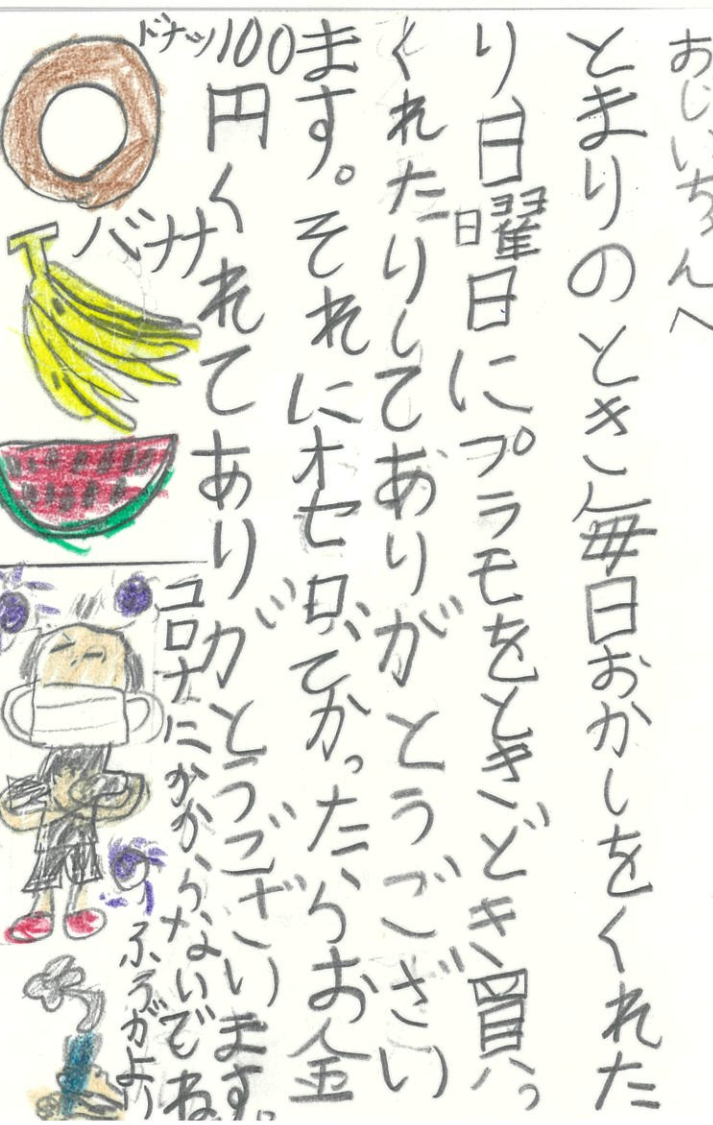 おじいちゃんへ
とまりのとき毎日おかしをくれた
り、日曜日にプラモをときどき買っ
くれたりしてありがとうござい
ます。それにオセロでかったらお金
100円くれてありがとうございます。
コロナにかからないでね
ふうがより
ドナッツ
バナナ